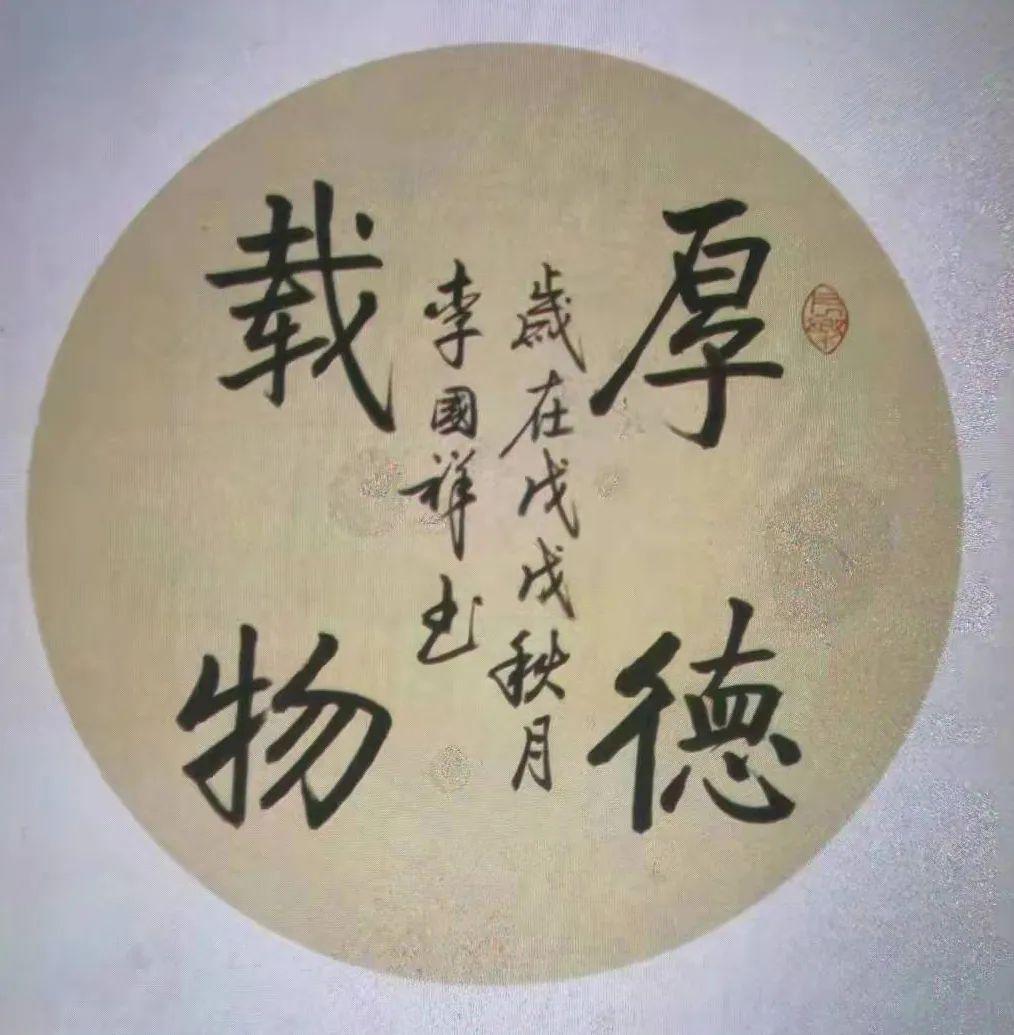 厚德
载物
歳在戊戌秋月
李國祥书